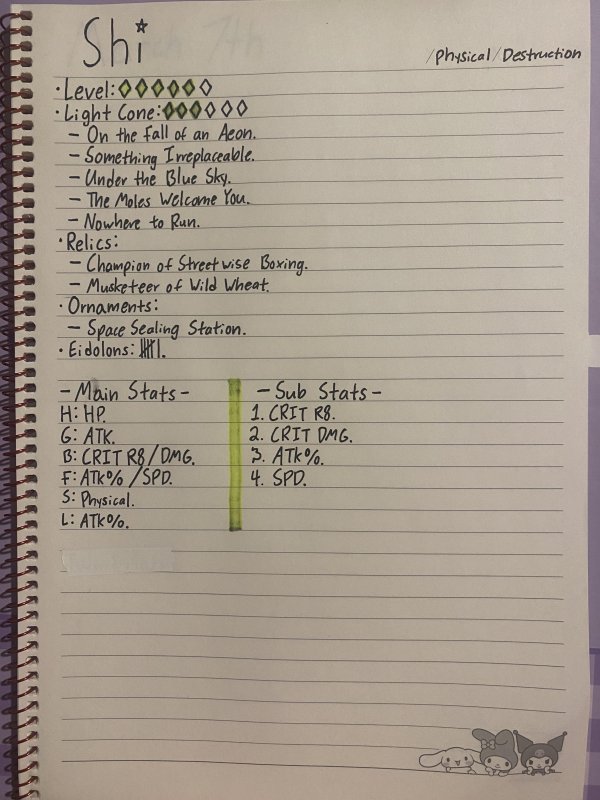 Shi
/Physical/Destruction
· Level:
· Light Cone:
- On the Fall of an Aeon.
- Something Irreplaceable.
- Under the Blue Sky.
- The Moles Welcome You.
- Nowhere to Run.
· Relics:
- Champion of Streetwise Boxing.
- Musketeer of Wild Wheat.
· Ornaments:
- Space Sealing Station.
· Eidolons: 卌|.
- Main Stats -
H: HP.
G: ATK.
B: CRIT R8/DMG.
F: ATK%/SPD.
S: Physical.
L: ATK%.
- Sub Stats -
1. CRIT R8.
2. CRIT DMG.
3. ATK%.
4. SPD.